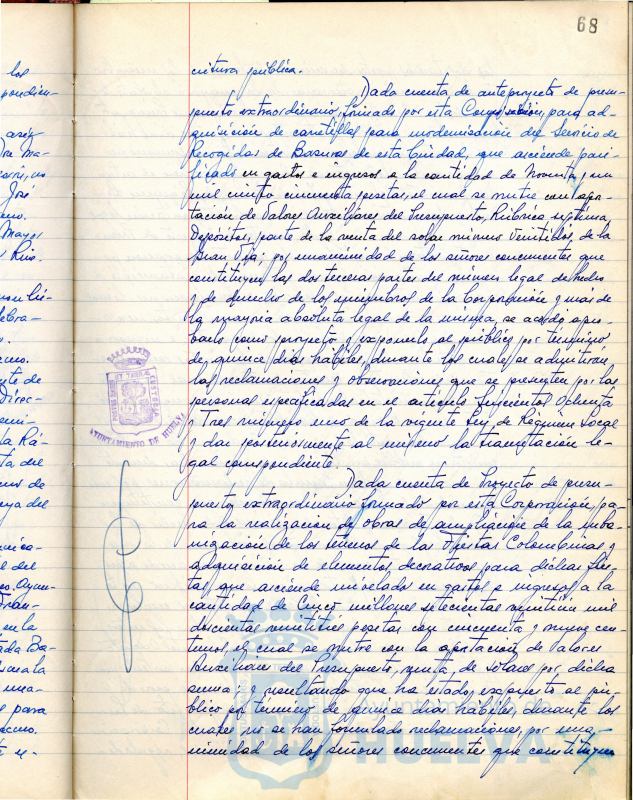 68
critura pública.
Dada cuenta de anteproyecto de presu-
puesto extraordinario, formado por esta Corporación, para ad-
quisición de carretillas para modernización del Servicio de
Recogidas de Basuras de esta Ciudad, que asciende
en gastos e ingresos a la cantidad de Noventa y un
mil ciento cincuenta pesetas, el cual se nutre con apor-
tación de Valores Auxiliares del Presupuesto, Rúbrica septima,
Depositos, parte de la venta del solar número Veintidos de la
Gran Vía; por unanimidad de los señores concurrentes que
constituyen las dos terceras partes del número legal de hecho
y de derecho de los miembros de la Corporación y más de
la mayoria absoluta legal de la misma, se acordó apro-
barlo como proyecto y exponerlo al público por término
de quince dias hábiles, durante los cuales se admitiran
las reclamaciones y observaciones que se presenten por las
personas especificadas en el articulo Seiscientos Ochenta
y Tres número uno de la vigente Ley de Régimen Local
y dar posteriormente al mismo la tramitación le-
gal correspondiente.
Dada cuenta de Proyecto de presu-
puesto extraordinario formado por esta Corporación, pa-
ra la realización de obras de ampliación de la urba-
nización de los terrenos de las Fiestas Colombinas y
adquisición de elementos decorativos para dichas Fies-
tas, que asciende nivelado en gastos e ingresos a la
cantidad de Cinco millones setecientas veintiun mil
doscientas veintitrés pesetas con cincuenta y nueve cen-
timos, el cual se nutre con la aportación de valores
Auxiliares del Presupuesto, venta de solares por dicha
suma; y resultando que ha estado expuesto al pú-
blico en termino de quince dias hábiles, durante los
cuales no se han formulado reclamaciones, por una-
nimidad de los señores concurrentes que constituyen
AYUNTAMIENTO DE HUELVA
ayuntamiento de
HUELVA